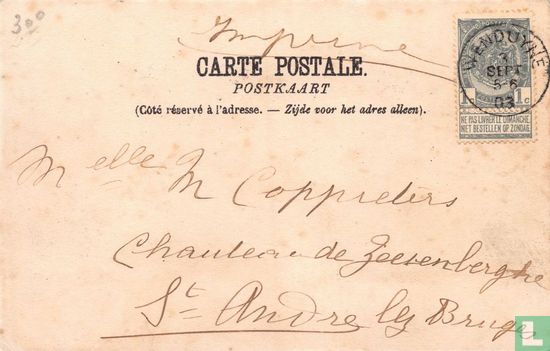 300
Imprimé
CARTE POSTALE.
POSTKAART
(Côté réservé à l'adresse. — Zijde voor het adres alleen).
WENDUYNE
SEPT
5-6
03
1 1c
NE PAS LIVRER LE DIMANCHE
NIET BESTELLEN OP ZONDAG
Melle M Coppieters
Chauteau de Zeesenberghe
St. André lez Bruges
L